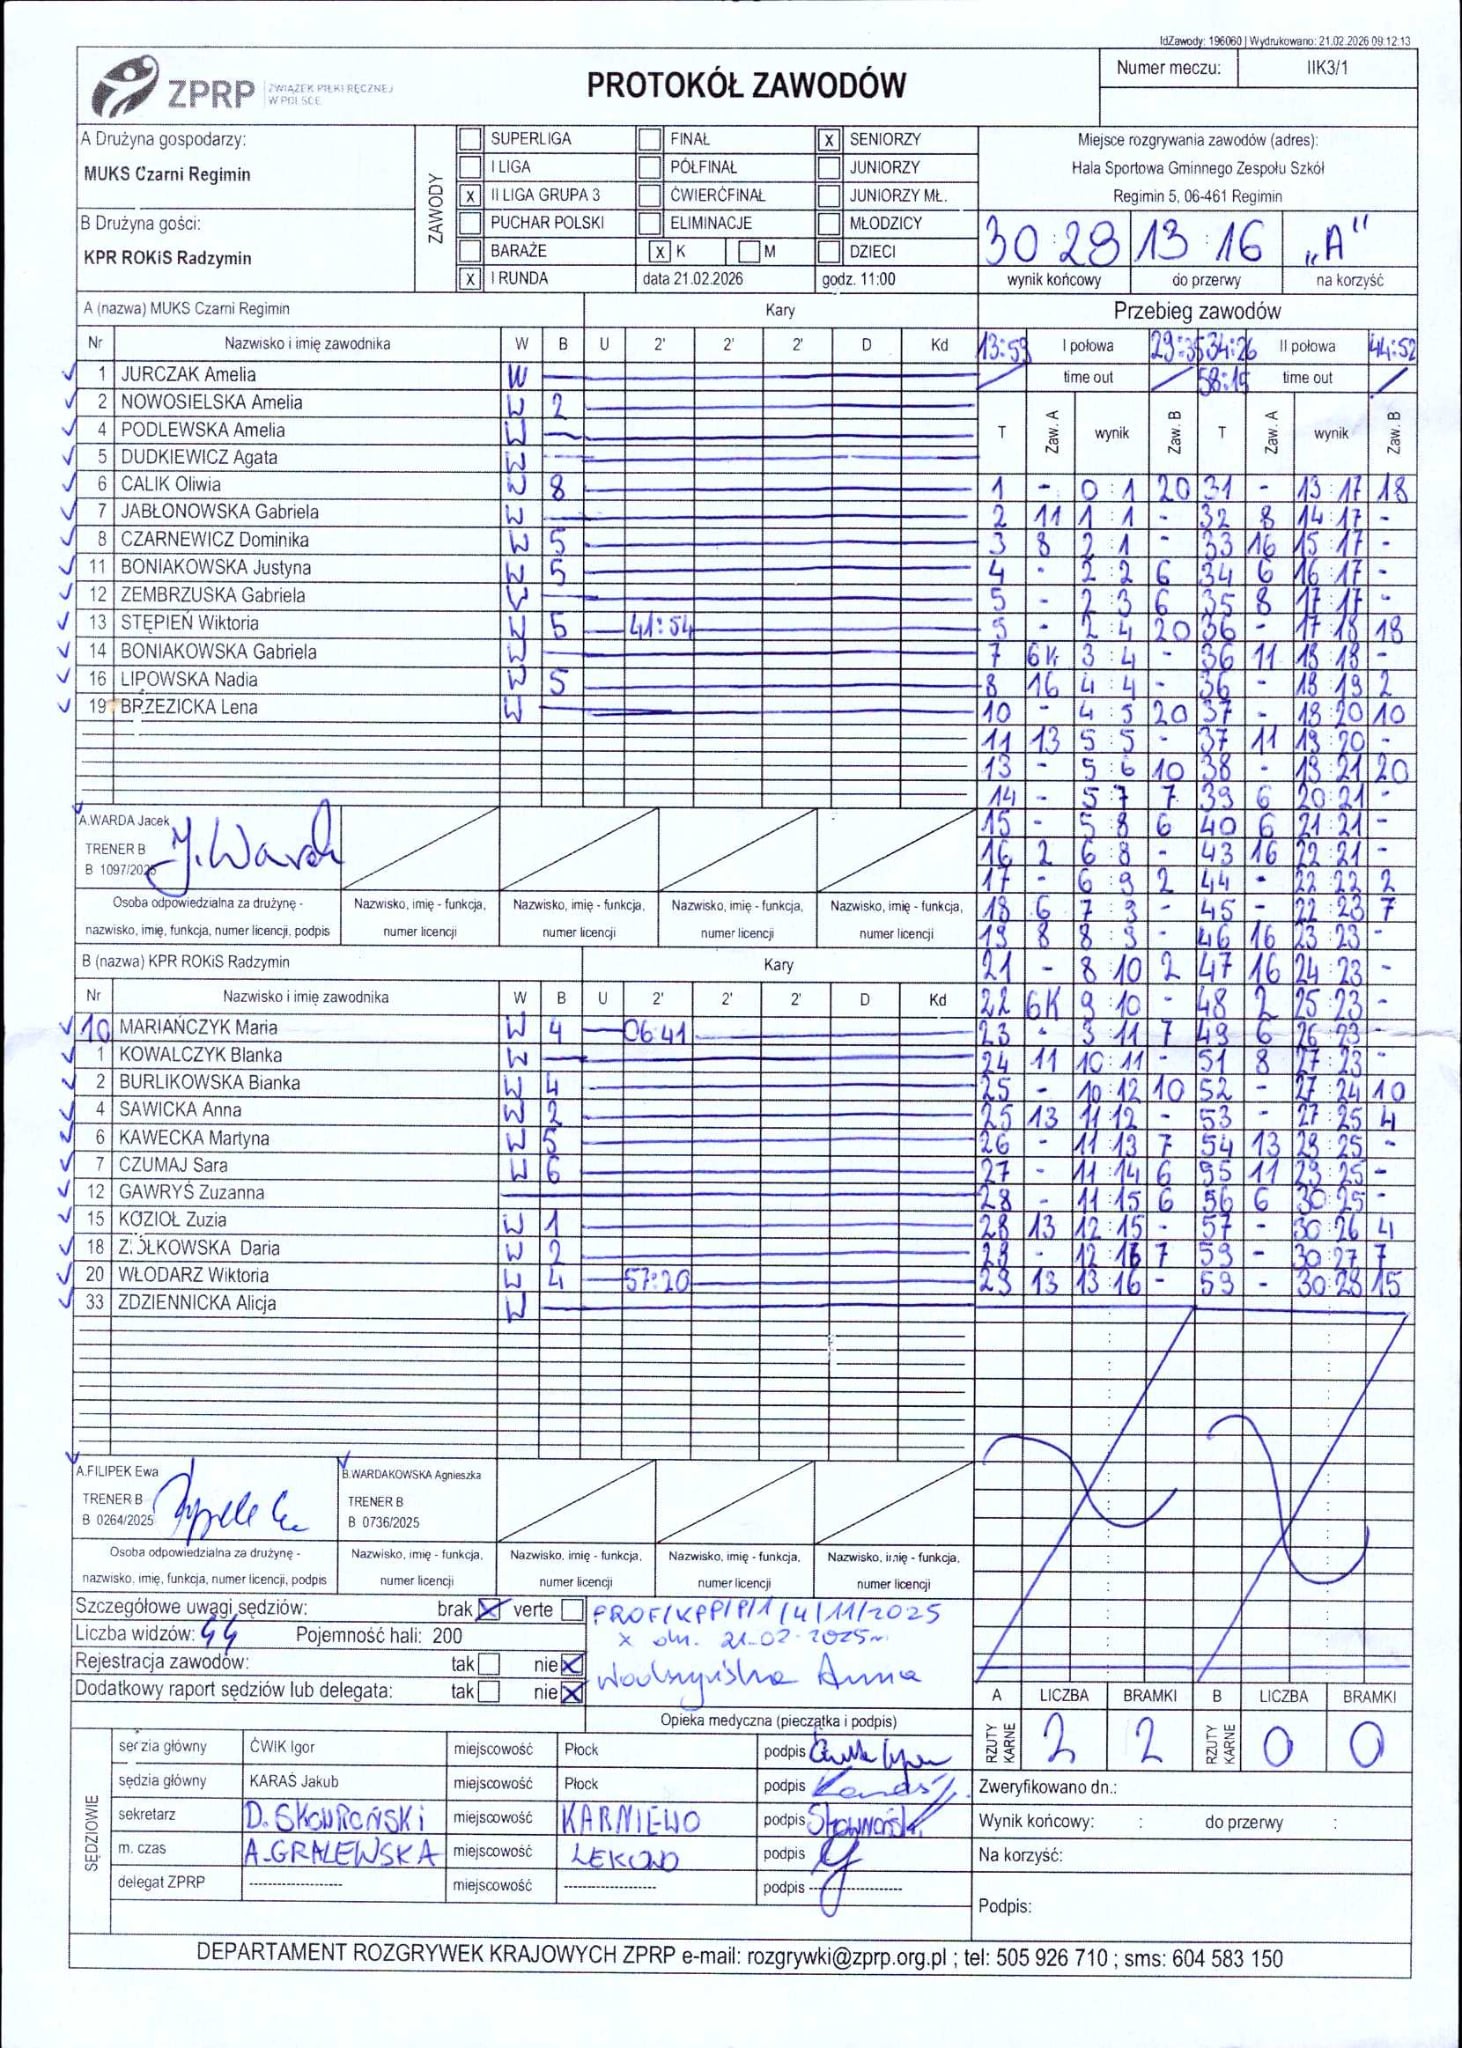 IdZawody: 196060 | Wydrukowano: 21.02.2026 09:12:13
ZPRP ZWIĄZEK PIŁKI RĘCZNEJ W POLSCE
PROTOKÓŁ ZAWODÓW
Numer meczu: IIK3/1
A Drużyna gospodarzy:
MUKS Czarni Regimin
B Drużyna gości:
KPR ROKiS Radzymin
ZAWODY
SUPERLIGA FINAŁ X SENIORZY
I LIGA PÓŁFINAŁ JUNIORZY
X II LIGA GRUPA 3 ĆWIERĆFINAŁ JUNIORZY MŁ.
PUCHAR POLSKI ELIMINACJE MŁODZICY
BARAŻE X K M DZIECI
X I RUNDA data 21.02.2026 godz. 11:00
Miejsce rozgrywania zawodów (adres):
Hala Sportowa Gminnego Zespołu Szkół
Regimin 5, 06-461 Regimin
30:28 13:16 „A"
wynik końcowy do przerwy na korzyść
A (nazwa) MUKS Czarni Regimin Kary
Nr Nazwisko i imię zawodnika W B U 2' 2' 2' D Kd
1 JURCZAK Amelia W
2 NOWOSIELSKA Amelia W 2
4 PODLEWSKA Amelia W
5 DUDKIEWICZ Agata W
6 CALIK Oliwia W 8
7 JABŁONOWSKA Gabriela W
8 CZARNEWICZ Dominika W 5
11 BONIAKOWSKA Justyna W 5
12 ZEMBRZUSKA Gabriela W
13 STĘPIEŃ Wiktoria W 5 41:54
14 BONIAKOWSKA Gabriela W
16 LIPOWSKA Nadia W 5
19 BRZEZICKA Lena W
A.WARDA Jacek
TRENER B
B 1097/2025
J. Warda
Osoba odpowiedzialna za drużynę -
nazwisko, imię, funkcja, numer licencji, podpis
Nazwisko, imię - funkcja, numer licencji
Nazwisko, imię - funkcja, numer licencji
Nazwisko, imię - funkcja, numer licencji
Nazwisko, imię - funkcja, numer licencji
B (nazwa) KPR ROKiS Radzymin Kary
Nr Nazwisko i imię zawodnika W B U 2' 2' 2' D Kd
10 MARIAŃCZYK Maria W 4 06:41
1 KOWALCZYK Blanka W
2 BURLIKOWSKA Bianka W 4
4 SAWICKA Anna W 2
6 KAWECKA Martyna W 5
7 CZUMAJ Sara W 6
12 GAWRYŚ Zuzanna
15 KOZIOŁ Zuzia W 1
18 ZIÓŁKOWSKA Daria W 2
20 WŁODARZ Wiktoria W 4 57:20
33 ZDZIENNICKA Alicja W
A.FILIPEK Ewa
TRENER B
B 0264/2025
B.WARDAKOWSKA Agnieszka
TRENER B
B 0736/2025
Osoba odpowiedzialna za drużynę -
nazwisko, imię, funkcja, numer licencji, podpis
Nazwisko, imię - funkcja, numer licencji
Nazwisko, imię - funkcja, numer licencji
Nazwisko, imię - funkcja, numer licencji
Nazwisko, imię - funkcja, numer licencji
Przebieg zawodów
13:59 I połowa 29:35 34:26 II połowa 44:52
time out 58:19 time out
T Zaw. A wynik Zaw. B T Zaw. A wynik Zaw. B
1 - 0:1 20 31 - 13:17 18
2 11 1:1 - 32 8 14:17 -
3 8 2:1 - 33 16 15:17 -
4 - 2:2 6 34 6 16:17 -
5 - 2:3 6 35 8 17:17 -
5 - 2:4 20 36 - 17:18 18
7 6K 3:4 - 36 11 18:18 -
8 16 4:4 - 36 - 18:19 2
10 - 4:5 20 37 - 18:20 10
11 13 5:5 - 37 11 19:20 -
13 - 5:6 10 38 - 19:21 20
14 - 5:7 7 39 6 20:21 -
15 - 5:8 6 40 6 21:21 -
16 2 6:8 - 43 16 22:21 -
17 - 6:9 2 44 - 22:22 2
18 6 7:9 - 45 - 22:23 7
19 8 8:9 - 46 16 23:23 -
21 - 8:10 2 47 16 24:23 -
22 6K 9:10 - 48 2 25:23 -
23 - 9:11 7 49 6 26:23 -
24 11 10:11 - 51 8 27:23 -
25 - 10:12 10 52 - 27:24 10
25 13 11:12 - 53 - 27:25 4
26 - 11:13 7 54 13 28:25 -
27 - 11:14 6 55 11 29:25 -
28 - 11:15 6 56 6 30:25 -
28 13 12:15 - 57 - 30:26 4
29 - 12:16 7 59 - 30:27 7
29 13 13:16 - 59 - 30:28 15
Szczegółowe uwagi sędziów: brak X verte
Liczba widzów: 44 Pojemność hali: 200
Rejestracja zawodów: tak nie X
Dodatkowy raport sędziów lub delegata: tak nie X
PROF/KPP/P/1/4/11/2025
x dn. 21.02.2025r.
Anna
Opieka medyczna (pieczątka i podpis)
A LICZBA BRAMKI B LICZBA BRAMKI
RZUTY KARNE 2 2 RZUTY KARNE 0 0
SĘDZIOWIE
sędzia główny ĆWIK Igor miejscowość Płock podpis
sędzia główny KARAŚ Jakub miejscowość Płock podpis Karaś J.
sekretarz D. SKOWROŃSKI miejscowość KARNIEWO podpis Skowroński
m. czas A. GRALEWSKA miejscowość LEKOWO podpis
delegat ZPRP -------------------- miejscowość -------------------- podpis --------------------
Zweryfikowano dn.:
Wynik końcowy: : do przerwy :
Na korzyść:
Podpis:
DEPARTAMENT ROZGRYWEK KRAJOWYCH ZPRP e-mail: rozgrywki@zprp.org.pl ; tel: 505 926 710 ; sms: 604 583 150